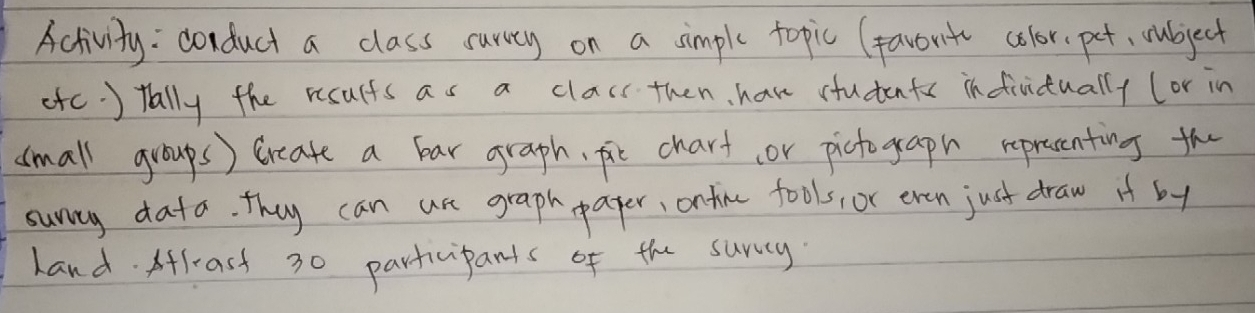 Activity: conduct a class survey on a simple topic (Favorite color, pet, subject
etc.) Tally the results as a class. then, have students individually (or in
small groups) Create a bar graph, pie chart, or pictograph representing the
survey data. They can use graph paper, online tools, or even just draw it by
hand. Atleast 30 participants of the survey.